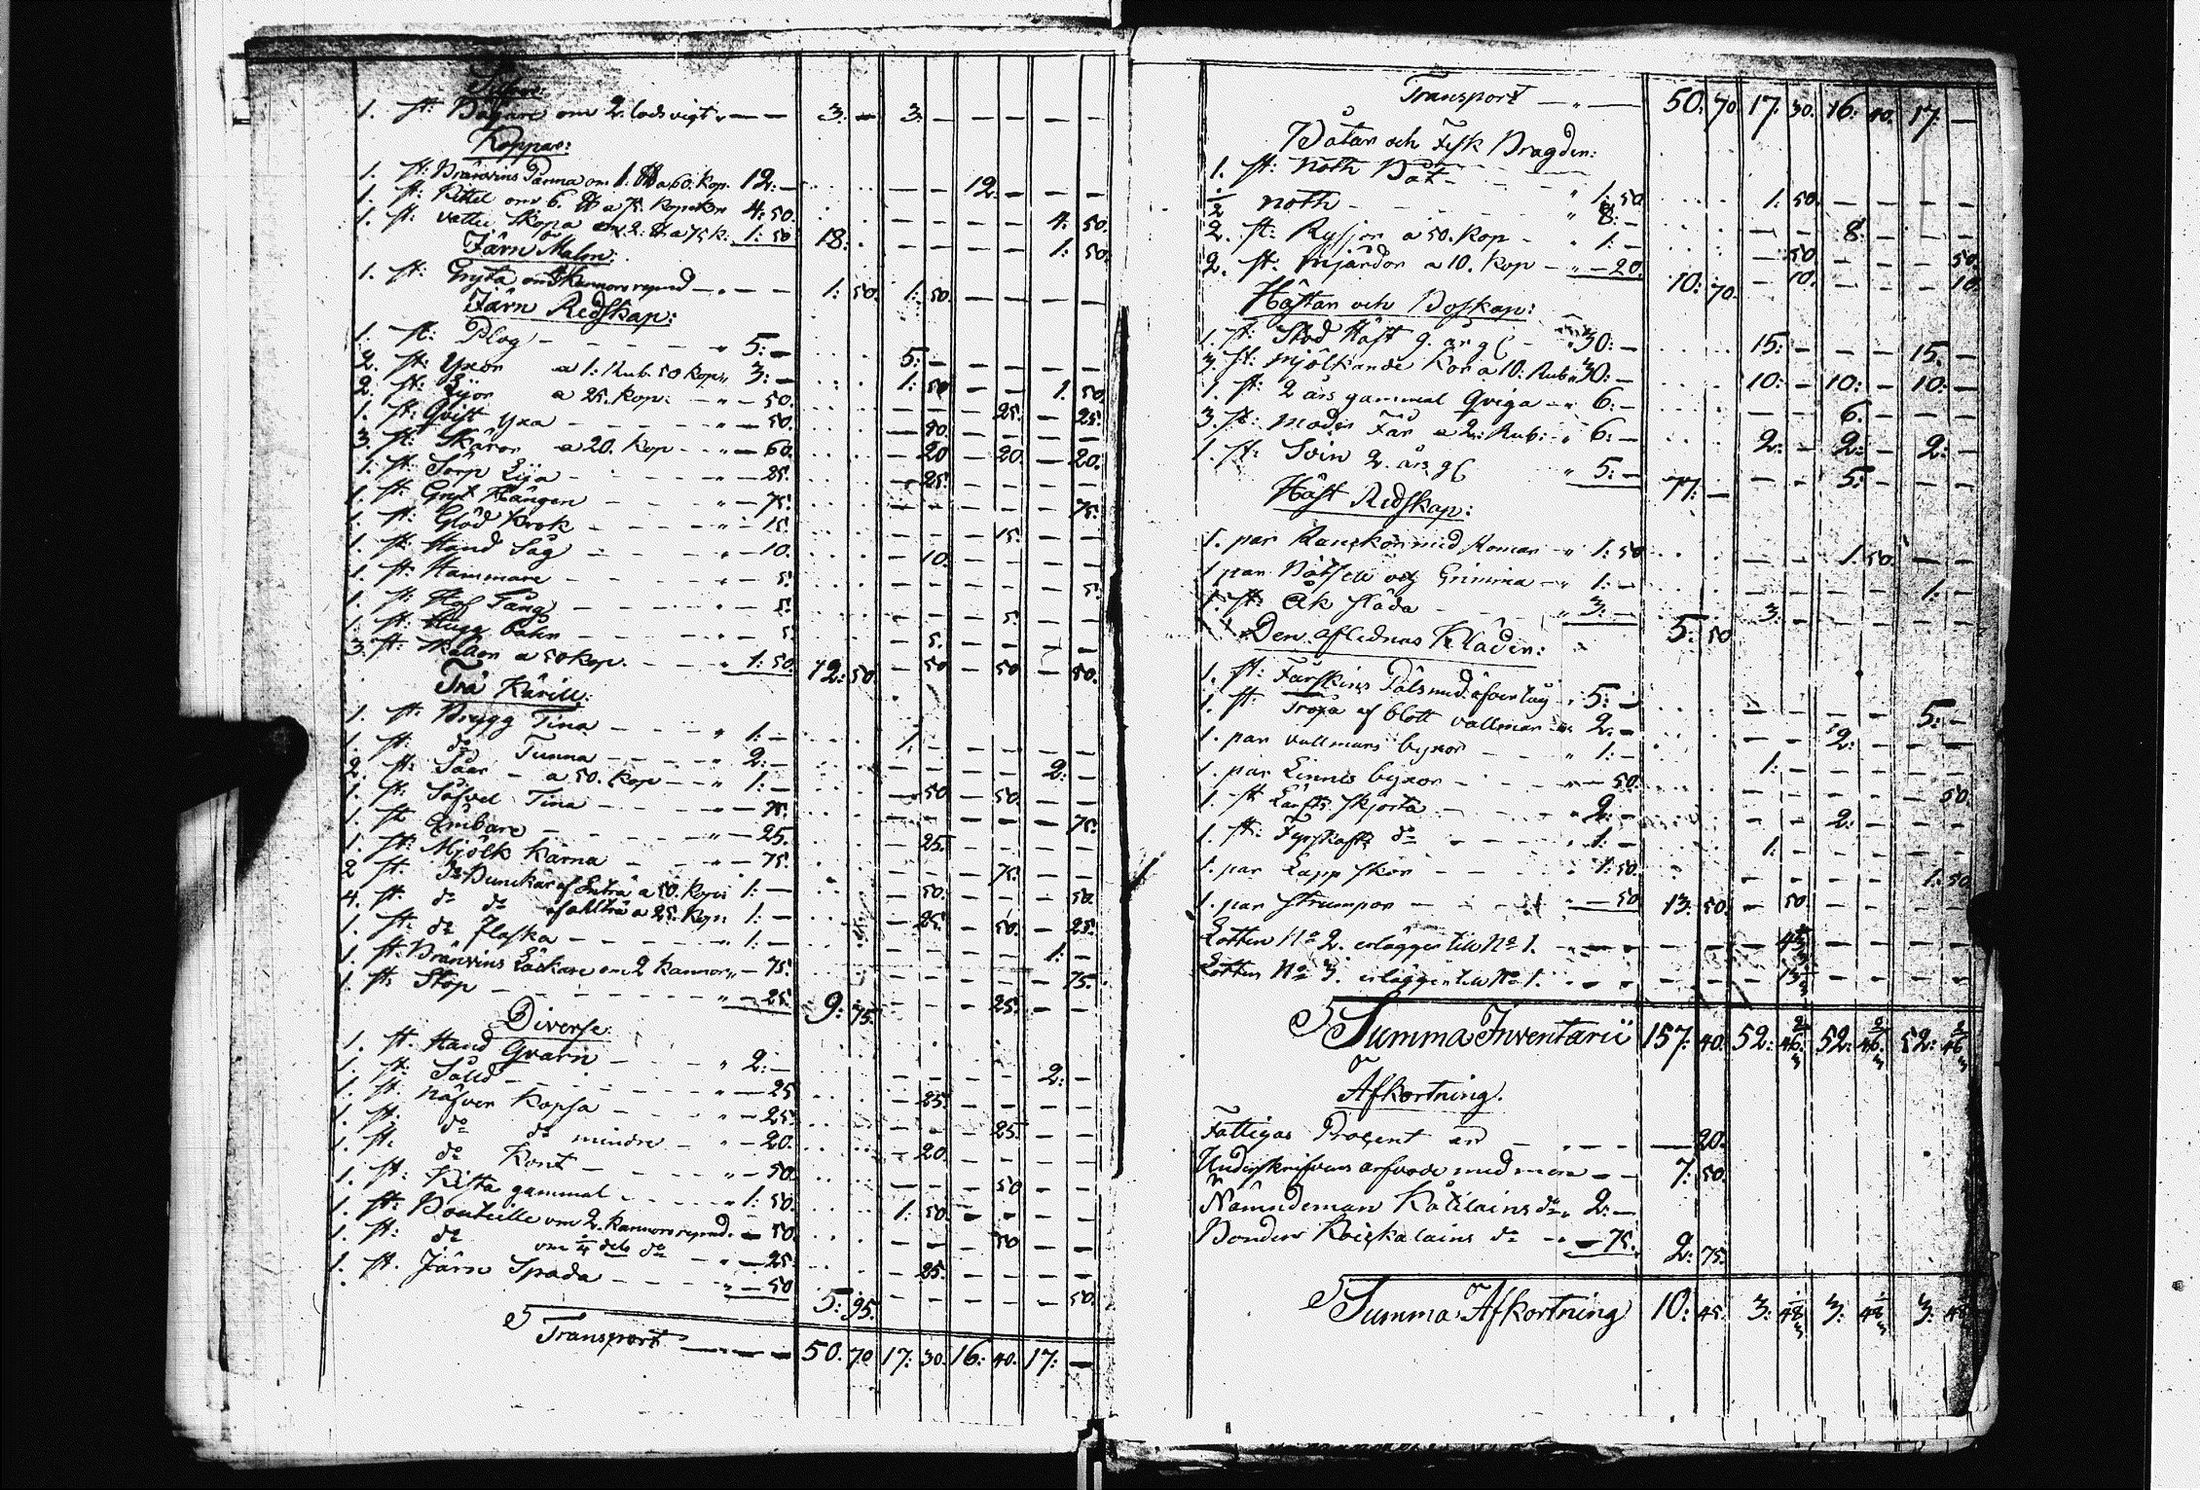 Silfver:
1. st: Bägare om 2. lods vigt „ — — 3: — 3: — — — — —
Koppar:
1. st: Brännvins Panna om 1. ℔ a 60. kop. 12: — — — 12: — — —
1. st: Kittel om 6. ℔ a 75. Kopekor 4: 50. — — — — 4: 50.
1. st: vatten skopa om 2. ℔ a 75 k. 1: 50 18: — — — — — 1: 50.
Järn Malm:
1. st: Gryta om kannors rymd — „ — — 1: 50. 1: 50. — — — —
Järn Redskap:
1. st: Plog — „ 5: — 5: — — — — —
2. st: Yxor a 1: Rub. 50 kop „ 3: — 1: 50 — — 1. 50.
2. st: Lijor a 25. Kop: — „ — 50. — — — 25. — 25.
1. st: Qvist Yxa — „ — 50. — 50. — — — —
3. st: Skäror a 20. Kop — „ — 60. — 20 — 20. — 20.
1. st: Sörp Lija — „ — 25. — 25. — — — —
1. st: Gryt Hängen — „ — 75. — — — — — 75.
1. st: Glöd Krok — „ — 15. — — — 15. — —
1. st: Hand Såg — „ — 10. — 10. — — — —
1. st: Hammare — „ — 5. — — — — — 5.
1. st: Hof Tång — „ — 5. — — — 5. — —
1. st: Hugg — „ — 5. — 5. — — — —
3. st: a 50 kop. — „ 1: 50. 12: 50. — 50 — 50 — 50.
Trä Kärill:
1. st: Brygg Tina — „ 1: — 1. — — — — —
1. st: do Tunna — „ 2: — — — — — 2: —
2. st: Såar — a 50. kop — „ 1: — — 50 — 50. — —
1. st: Såfvel Tina — „ — 75. — — — — — 75.
1. st Ämbare — „ — 25. — 25. — — — —
1. st: Mjölk Kärna — „ — 75. — — — 75. — —
2 st. do Bunckar af Enträ a 50. kopr 1: — — 50. — — — 50.
4. st. do do af ahlträ a 25. kop: 1: — — 25. — 50. — 25.
1. st: do flaska — „ 1: — — — — — 1: —
1. st: Bränvins Läckare om 2 kannor „ — 75. — — — — — 75.
1. st Stop — „ — 25. 9: 75. — — — 25. — —
Diverse:
1. st. Hand Qvarn — „ 2: — — — — — 2: —
1. st: Såll — „ — 25 — 25. — — — —
1. st. Näfver Kopsa — „ — 25. — — — 25. — —
1. st. do do mindre — „ — 20. — 20. — — — —
1. st. do Kont — „ — 50. — — — 50 — —
1. st: Kista gammal — „ 1: 50. 1: 50. — — — —
1. st: Bouteille om 2. kannors rymd. — 50. — — — 50 — —
1. st: do om ¼ dels do „ — 25. — 25. — — — —
1. st. Järn Spada — „ — 50 5: 95. — — — — — 50.
Transport — „ — — 50. 70 17: 30. 16: 40. 17: —
Transport — „ — 50. 70. 17: 30. 16: 40. 17: —
Båtar och Fisk Bragder:
1. st: Noth Båt — „ 1: 50 1: 50. — — — —
½ noth — „ 8: — — — 8: — — —
2. st: Ryssjor a 50. Kop — „ 1: — — 50 — — — 50.
2. st. mjärdor a 10. Kop — „ — 20. 10: 70. — 10. — — — 10.
Hästar och Boskap:
1. st: Stod Häst 9. år gl — „ 30: — 15: — — — 15: —
3. st: mjölkande Kor a 10: Rub „ 30: — 10: — 10: — 10: —
1. st: 2 års gammal Qviga — „ 6: — — — 6: — — —
3. st: moder Får a 2: Rub: „ 6: — 2: — 2: — 2: —
1. st: Svin 2. års gl „ 5: — 77: — — — 5: — — —
Häst Redskap:
1. par Ranckor med Komar — „ 1: 50 — — 1: 50. — —
1. par Grimma — „ 1: — — — — — 1: —
1. st: Åk släda — „ 3: — 5: 50 3: — — — — —
Den aflednas Kläder:
1. st: Fårskins Päls med öfver tyg „ 5: — — — — — 5: —
1. st. Tröja af blott vallmar „ 2: — — — 2: — — —
1. par vallmars byxor — „ 1: — 1: — — — — —
1. par Linnes byxor — „ — 50. — — — — — 50.
1. st Lärfts skjorta — „ 2: — — — 2: — — —
1. st: Fyrskafts do — „ 1: — 1: — — — — —
1. par Lapp skor — „ 1: 50. — — — — 1: 50
1. par strumpor — „ — 50 13: 50. — 50. — — — —
Lotten No 2. erlägger till No 1. — — — — 4⅓ — — — —
Lotten No 3. erlägger till No 1. — — — — 13⅓ — — — —
Summa Inventarii 157: 40. 52: 46⅔ 52: 46⅔ 52: 46⅔
Afkortning.
Fattigas Procent är — — 20.
Underskrifvares arfvode med mera — — 7: 50.
Nämndeman Katilains do „ 2: —
Bonden do „ — 75. 2: 75.
Summa Afkortning 10: 45. 3: 48⅓ 3: 48⅓ 3: 48⅓